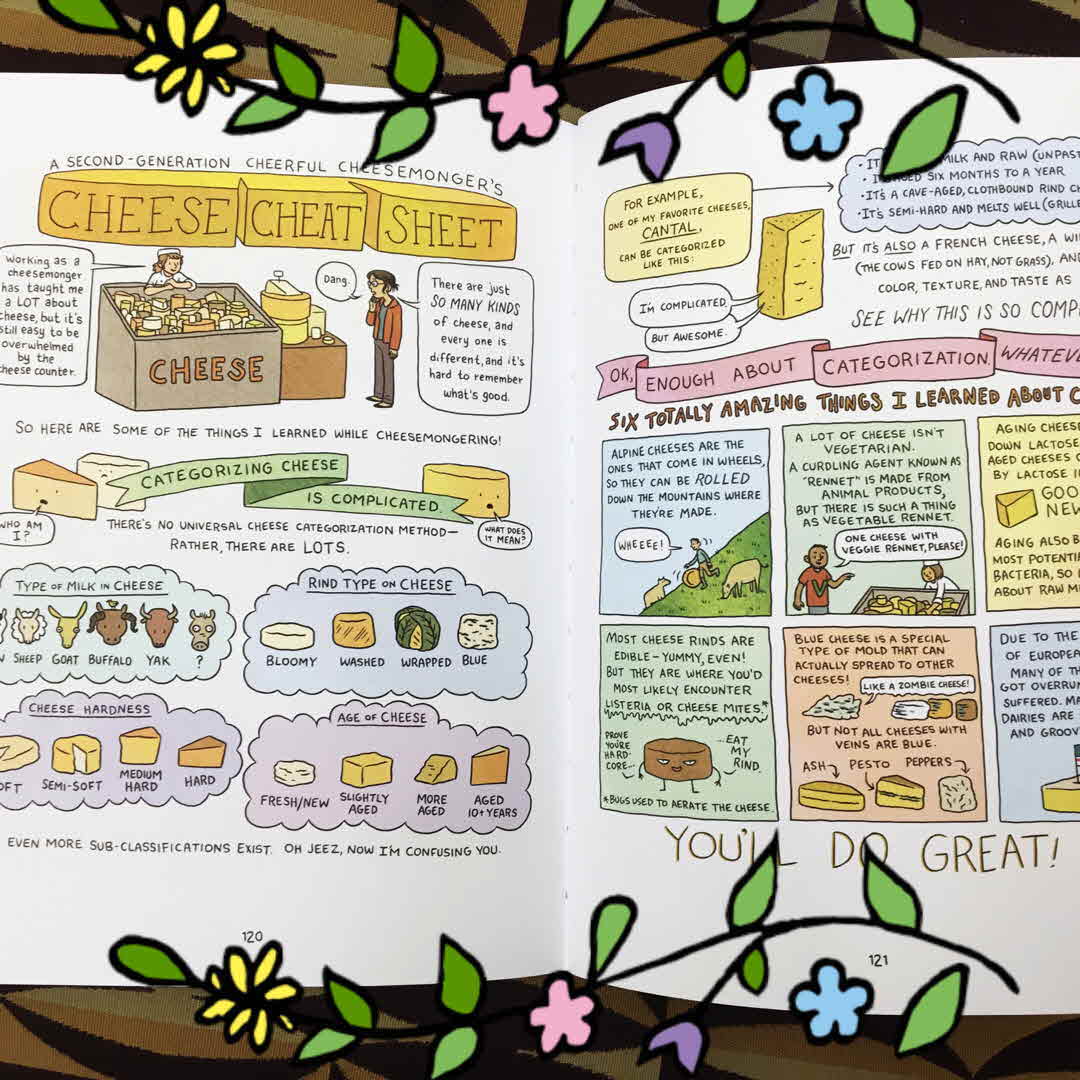 A SECOND-GENERATION CHEERFUL CHEESEMONGER'S
CHEESE CHEAT SHEET
Working as a
cheesemonger
has taught me
a LOT about
cheese, but it's
still easy to be
overwhelmed
by the
cheese counter.
CHEESE
Dang.
There are just
SO MANY KINDS
of cheese, and
every one is
different, and it's
hard to remember
what's good.
SO HERE ARE SOME OF THE THINGS I LEARNED WHILE CHEESEMONGERING!
CATEGORIZING CHEESE
IS COMPLICATED.
WHO AM
I?
WHAT DOES
IT MEAN?
THERE'S NO UNIVERSAL CHEESE CATEGORIZATION METHOD—
RATHER, THERE ARE LOTS.
TYPE OF MILK IN CHEESE
SHEEP GOAT BUFFALO YAK ?
RIND TYPE ON CHEESE
BLOOMY WASHED WRAPPED BLUE
CHEESE HARDNESS
SEMI-SOFT MEDIUM HARD HARD
AGE OF CHEESE
FRESH/NEW SLIGHTLY AGED MORE AGED AGED 10+YEARS
EVEN MORE SUB-CLASSIFICATIONS EXIST. OH JEEZ, NOW I'M CONFUSING YOU.
120
FOR EXAMPLE,
ONE OF MY FAVORITE CHEESES,
CANTAL,
CAN BE CATEGORIZED
LIKE THIS:
MILK AND RAW
SIX MONTHS TO A YEAR
• IT'S A CAVE-AGED, CLOTHBOUND RIND
• IT'S SEMI-HARD AND MELTS WELL
I'M COMPLICATED.
BUT AWESOME.
BUT IT'S ALSO A FRENCH CHEESE, A
(THE COWS FED ON HAY, NOT GRASS),
COLOR, TEXTURE, AND TASTE AS
SEE WHY THIS IS SO
OK, ENOUGH ABOUT CATEGORIZATION.
SIX TOTALLY AMAZING THINGS I LEARNED ABOUT
ALPINE CHEESES ARE THE
ONES THAT COME IN WHEELS,
SO THEY CAN BE ROLLED
DOWN THE MOUNTAINS WHERE
THEY'RE MADE.
WHEEEE!
A LOT OF CHEESE ISN'T
VEGETARIAN.
A CURDLING AGENT KNOWN AS
"RENNET" IS MADE FROM
ANIMAL PRODUCTS,
BUT THERE IS SUCH A THING
AS VEGETABLE RENNET.
ONE CHEESE WITH
VEGGIE RENNET, PLEASE!
V
AGING CHEESE
DOWN LACTOSE
AGED CHEESES
BY LACTOSE
AGING ALSO
MOST
BACTERIA, SO
ABOUT RAW
MOST CHEESE RINDS ARE
EDIBLE—YUMMY, EVEN!
BUT THEY ARE WHERE YOU'D
MOST LIKELY ENCOUNTER
LISTERIA OR CHEESE MITES.*
PROVE
YOU'RE
HARD-
CORE...
...EAT
MY
RIND.
*BUGS USED TO AERATE THE CHEESE.
BLUE CHEESE IS A SPECIAL
TYPE OF MOLD THAT CAN
ACTUALLY SPREAD TO OTHER
CHEESES!
LIKE A ZOMBIE CHEESE!
BUT NOT ALL CHEESES WITH
VEINS ARE BLUE.
ASH PESTO PEPPERS
DUE TO THE
OF
MANY OF
GOT
SUFFERED.
DAIRIES ARE
AND
YOU'LL DO GREAT!
121